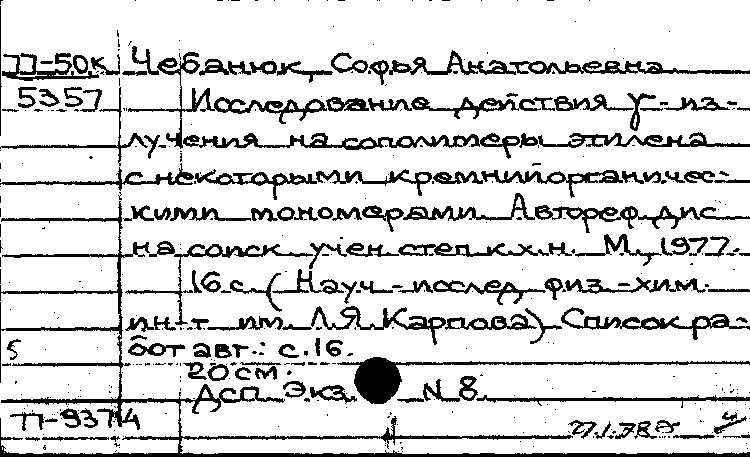 77-50к Чебанюк, Софья Анатольевна
5357 Исследование действия γ-из-
лучения на сополимеры этилена
с некоторыми кремнийорганичес-
кими мономерами. Автореф. дис.
на соиск. учен. степ. к.х.н. М., 1977.
16 с. (Науч.-исслед. физ.-хим.
ин-т им. Л.Я. Карпова) Список ра-
5 бот авт.: с. 16.
20 см.
ДСП. Экз. N 8.
77-93714